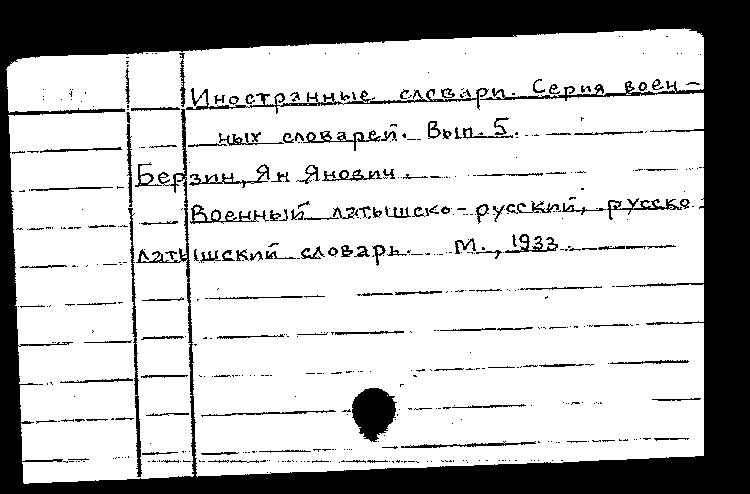 Иностранные словари. Серия воен-
ных словарей. Вып. 5.
Берзин, Ян Янович.
Военный латышско-русский, русско-
латышский словарь. М., 1933.